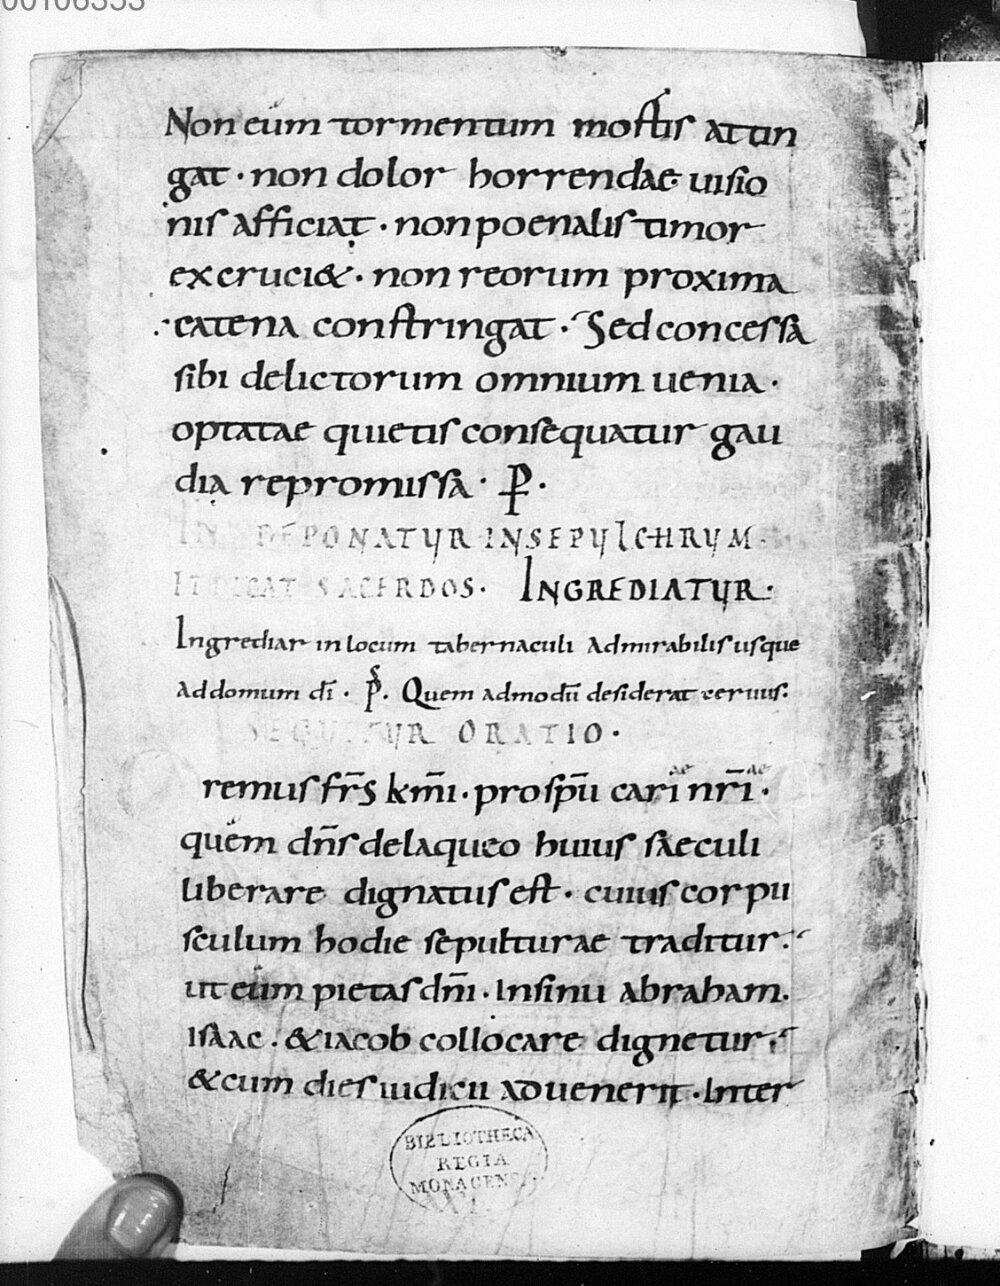 00106353
Non eum tormentum mortis attin
gat · non dolor horrendae uisio
nis afficiat · non poenalis timor
excruci& · non reorum proxima
catena constringat · Sed concessa
sibi delictorum omnium uenia ·
optatae quietis consequatur gau
dia repromissa · P ·
DEPONATUR IN SEPULCHRUM ·
SACERDOS · INGREDIATUR ·
Ingrediar in locum tabernaculi admirabilis usque
ad domum dī · P̄s · Quem admodū desiderat ceruus :
SEQUITUR ORATIO ·
remus fr̄s km̄i · pro spū cari nr̄i ·
quem dn̄s delaqueo huius saeculi
liberare dignatus est · cuius corpu
sculum hodie sepulturae traditur ·
ut eum pietas dn̄i · In sinu abraham ·
isaac · & iacob collocare dignetur ·
& cum dies iudicii aduenerit · Inter
BIBLIOTHECA
REGIA
MONACENSIS